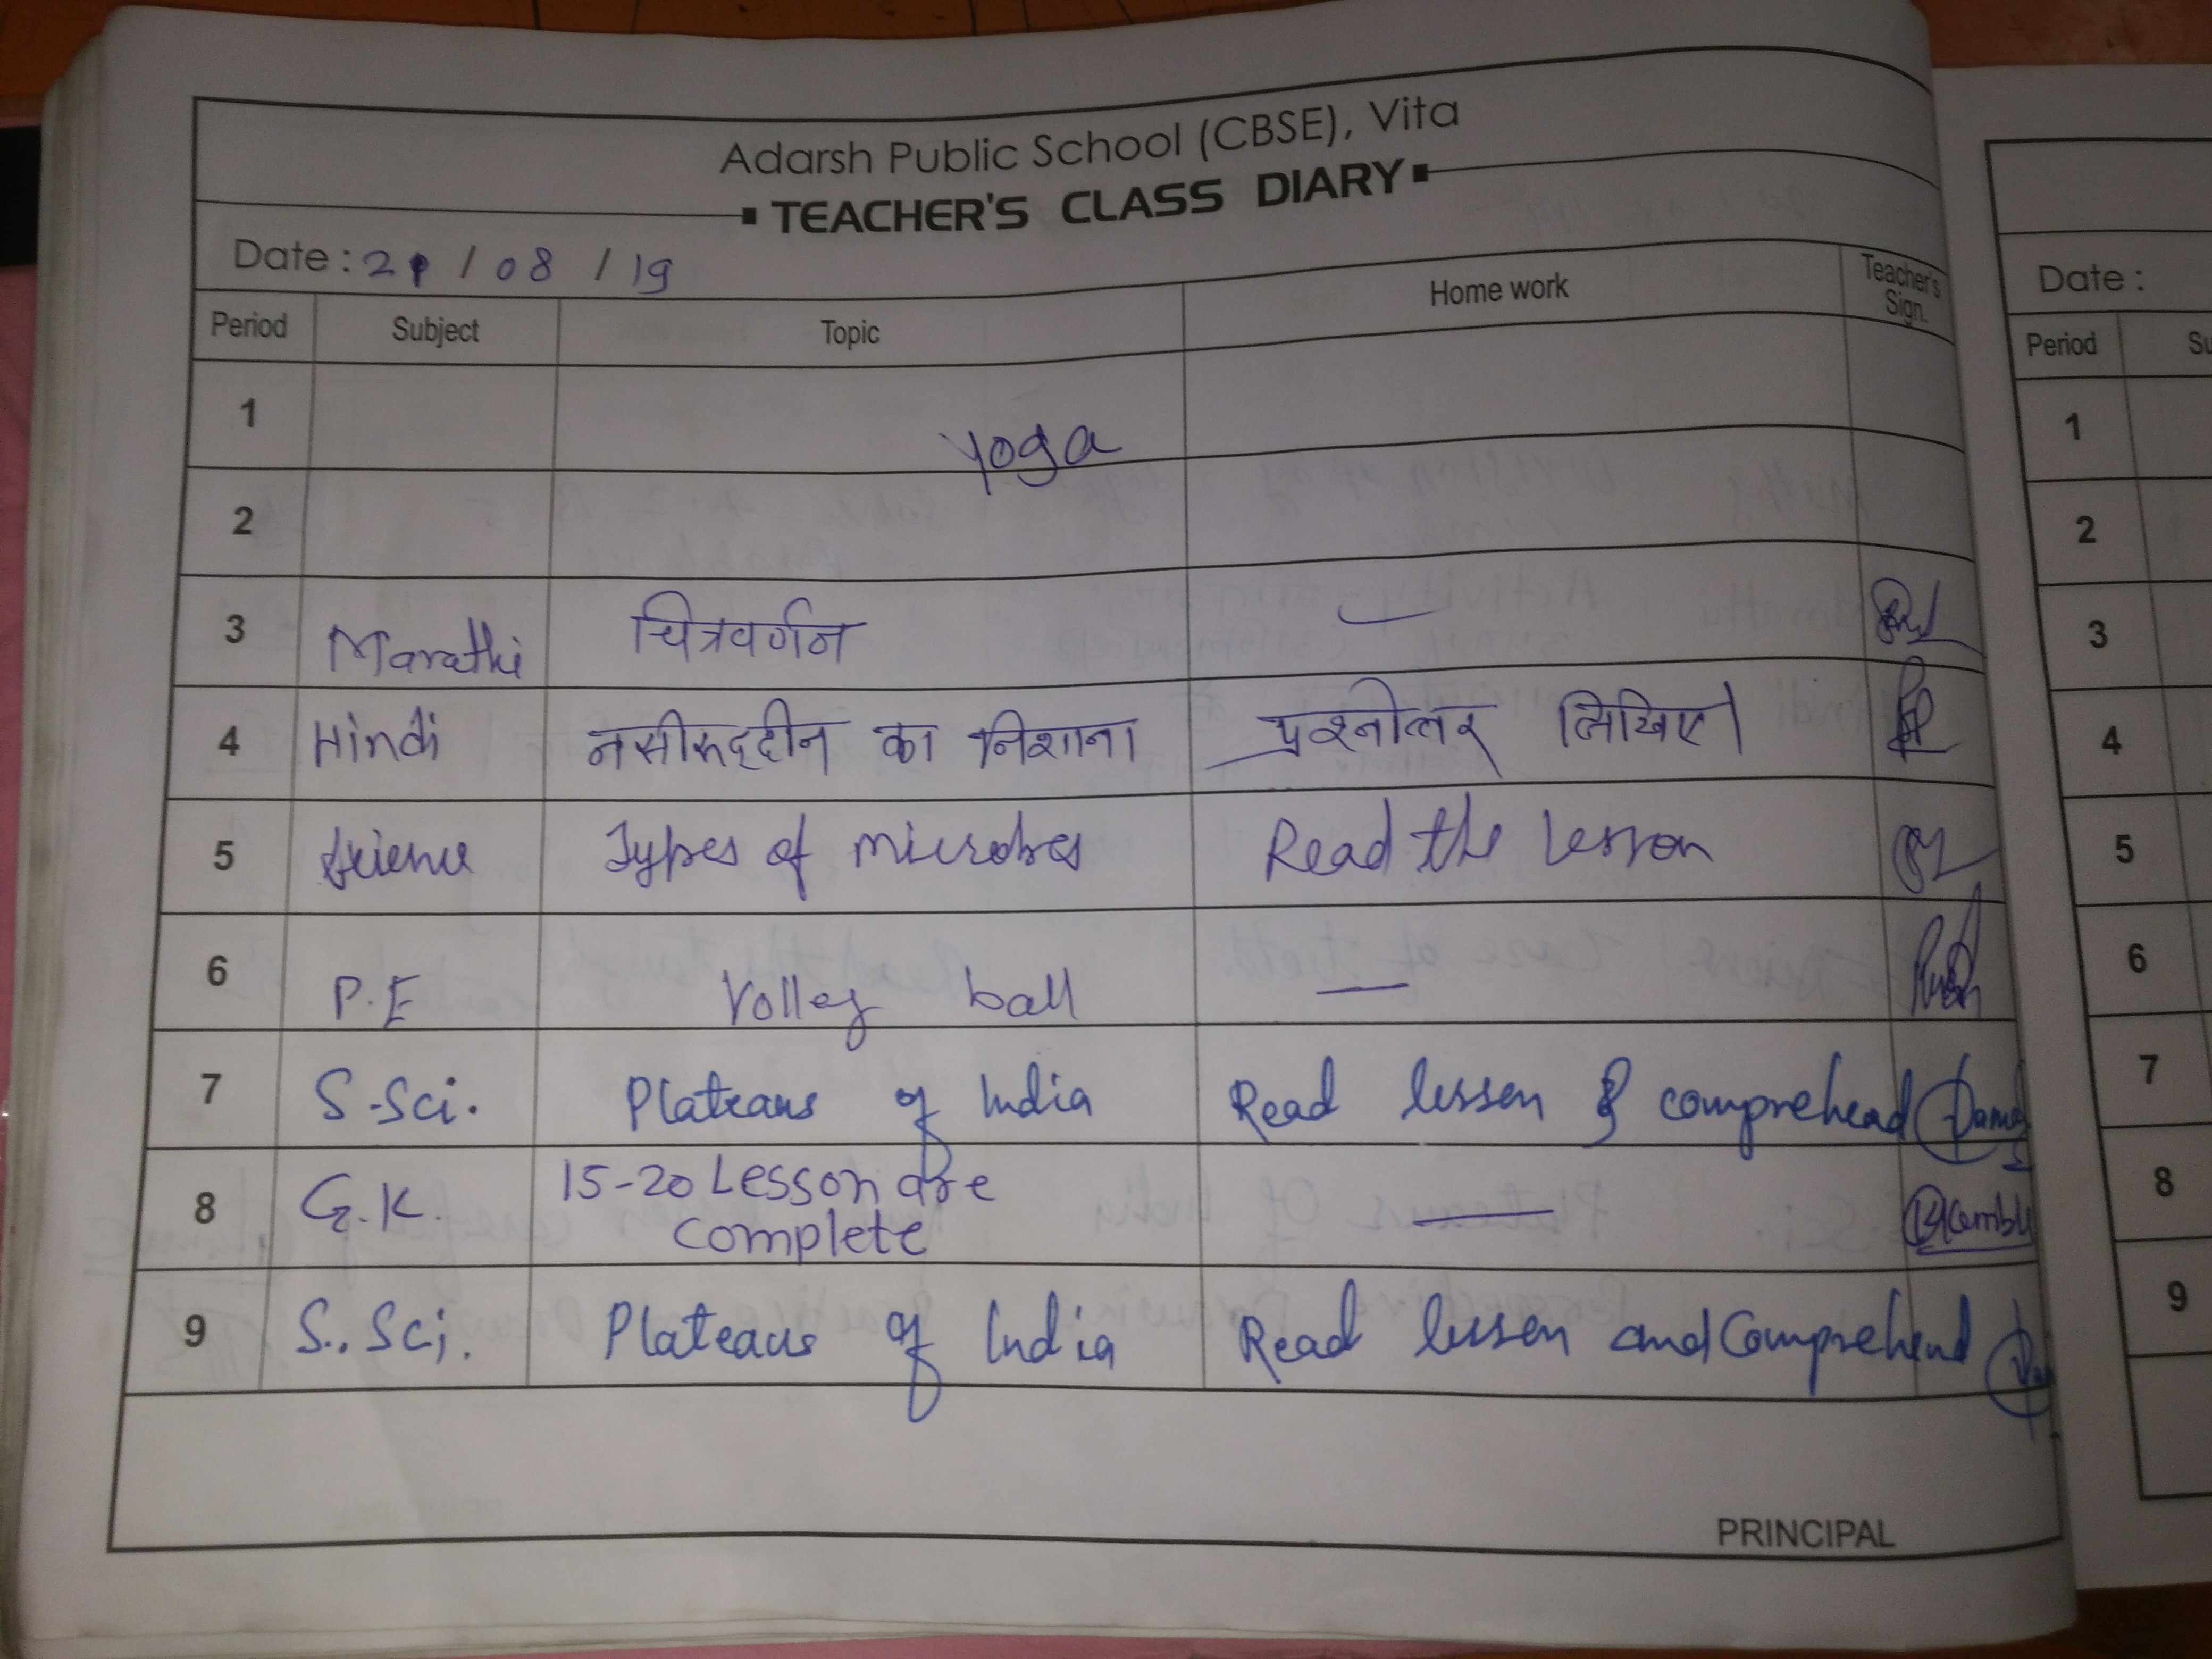 Adarsh Public School (CBSE), Vita
TEACHER'S CLASS DIARY
Date : 21 / 08 / 19
Period Subject Topic Home work Teacher's Sign.
1
yoga
2
3 Marathi चित्रवर्णन —
4 Hindi नसीरुद्दीन का निशाना प्रश्नोत्तर लिखिए।
5 Science Types of microbes Read the lesson
6 P.E Volley ball —
7 S.Sci. Plateaus of India Read lesson & comprehead
8 G.K. 15-20 Lesson are complete —
9 S. Sci. Plateaus of India Read lesson and Comprehend
PRINCIPAL
Date :
Period
1
2
3
4
5
6
7
8
9